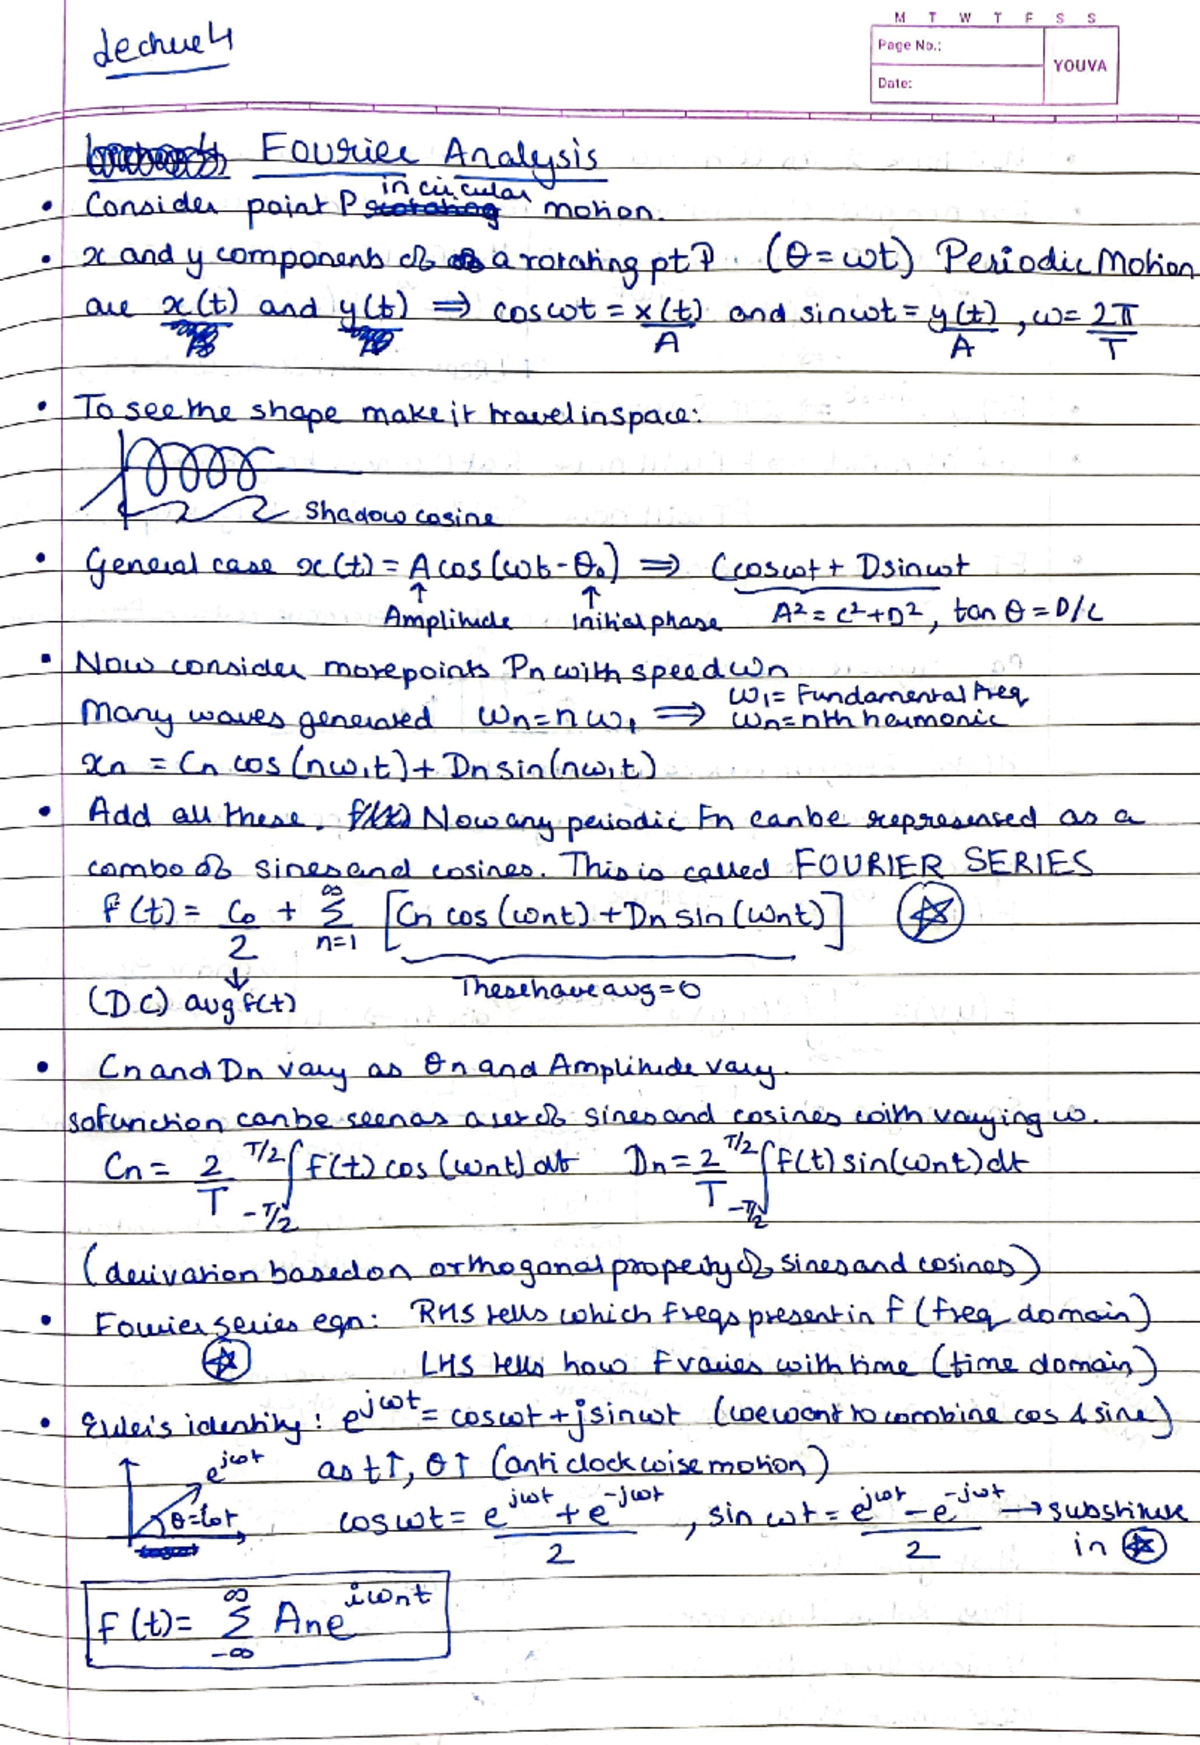 Lecture 4
M T W T F S S
Page No.:
YOUVA
Date:
Fourier Analysis
• Consider point P in circular motion.
• x and y components of a rotating pt P. (θ = ωt) Periodic Motion
are x(t) and y(t) ⇒ cosωt = x(t)/A and sinωt = y(t)/A, ω = 2π/T
• To see the shape make it travel in space:
Shadow cosine
• General case x(t) = A cos(ωt - θ₀) ⇒ C cosωt + D sinωt
↑ Amplitude ↑ Initial phase A² = C² + D², tan θ = D/C
• Now consider more points Pn with speed ωn
Many waves generated ωn = nω₁ ⇒ ω₁ = Fundamental freq
ωn = nth harmonic
xn = Cn cos(nω₁t) + Dn sin(nω₁t)
• Add all these. Now any periodic Fn can be represented as a
combo of sines and cosines. This is called FOURIER SERIES
f(t) = C₀/2 + ∞Σn=1 [Cn cos(ωnt) + Dn sin(ωnt)] ☆
↓
(DC) avg f(t) These have avg = 0
• Cn and Dn vary as θn and Amplitude vary.
so function can be seen as a set of sines and cosines with varying ω.
Cn = 2/T T/2∫-T/2 f(t) cos(ωnt) dt Dn = 2/T T/2∫-T/2 f(t) sin(ωnt) dt
(derivation based on orthogonal property of sines and cosines)
• Fourier series eqn: RHS tells which freqs present in f (freq domain)
☆ LHS tells how F varies with time (time domain)
• Euler's identity: e^jωt = cosωt + j sinωt (we want to combine cos & sine)
e^jωt as t↑, θ↑ (anti clockwise motion)
θ = ωt cos ωt = e^jωt + e^-jωt/2, sin ωt = e^jωt - e^-jωt/2 → substitute
in ☆
f(t) = ∞Σ-∞ An e^iωnt